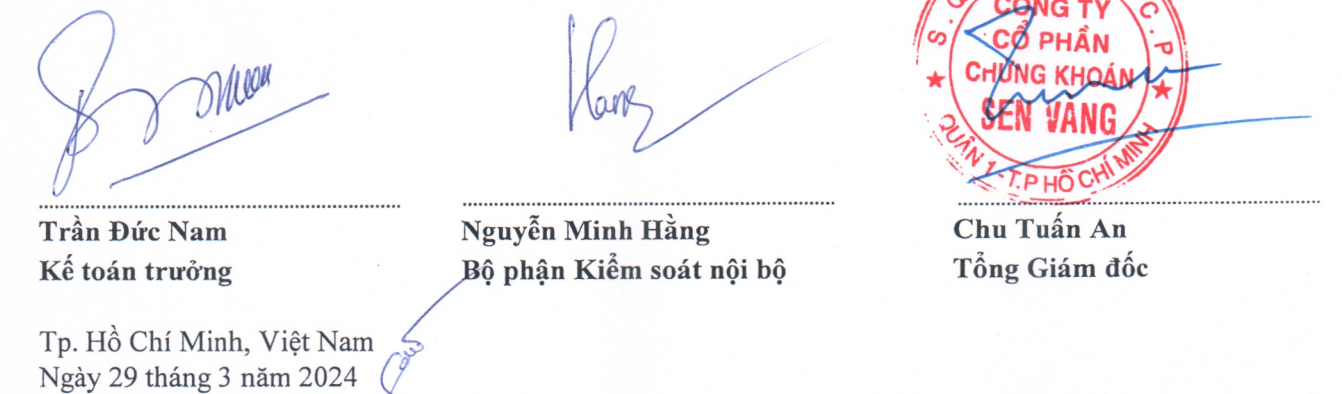 CÔNG TY
CỔ PHẦN
CHỨNG KHOÁN
SEN VÀNG
QUẬN 1 - T.P HỒ CHÍ MINH
Hang
Trần Đức Nam
Kế toán trưởng
Nguyễn Minh Hằng
Bộ phận Kiểm soát nội bộ
Chu Tuấn An
Tổng Giám đốc
Tp. Hồ Chí Minh, Việt Nam
Ngày 29 tháng 3 năm 2024